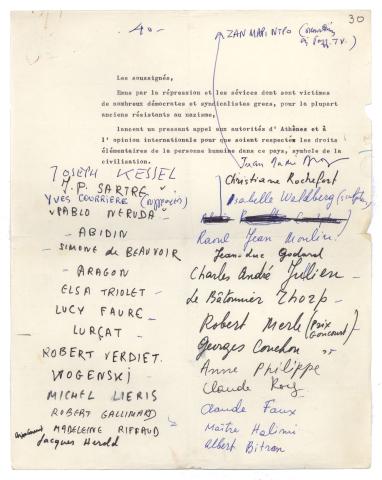 30
- 40 -
ZAN MARI NTPO
Les soussignés,
Emus par la répression et les sévices dont sont victimes
de nombreux démocrates et syndicalistes grecs, pour la plupart
anciens résistants au nazisme,
lancent un pressant appel aux autorités d' Athènes et à
l' opinion internationale pour que soient respectés les droits
élémentaires de la personne humaine dans ce pays, symbole de la
civilisation.
JOSEPH KESSEL
J.P. SARTRE
YVES COURRIÈRE
PABLO NERUDA
- ABIDIN
SIMONE de BEAUVOIR
- ARAGON
ELSA TRIOLET -
LUCY FAURE -
LURÇAT -
ROBERT VERDIET.
WOGENSKI -
MICHEL LIERIS
ROBERT GALLIMARD
MADELEINE RIFFAUD
Jacques Herold
Christiane Rochefort
Isabelle Waldberg
Raoul Jean Moulin.
Jean-Luc Godard
Charles André Julien -
Le Bâtonnier Thorp -
Robert Merle (Prix Goncourt)
Georges Conchon
Anne Philippe
Claude Roy
Claude Faux
Maître Halimi
Albert Bitran